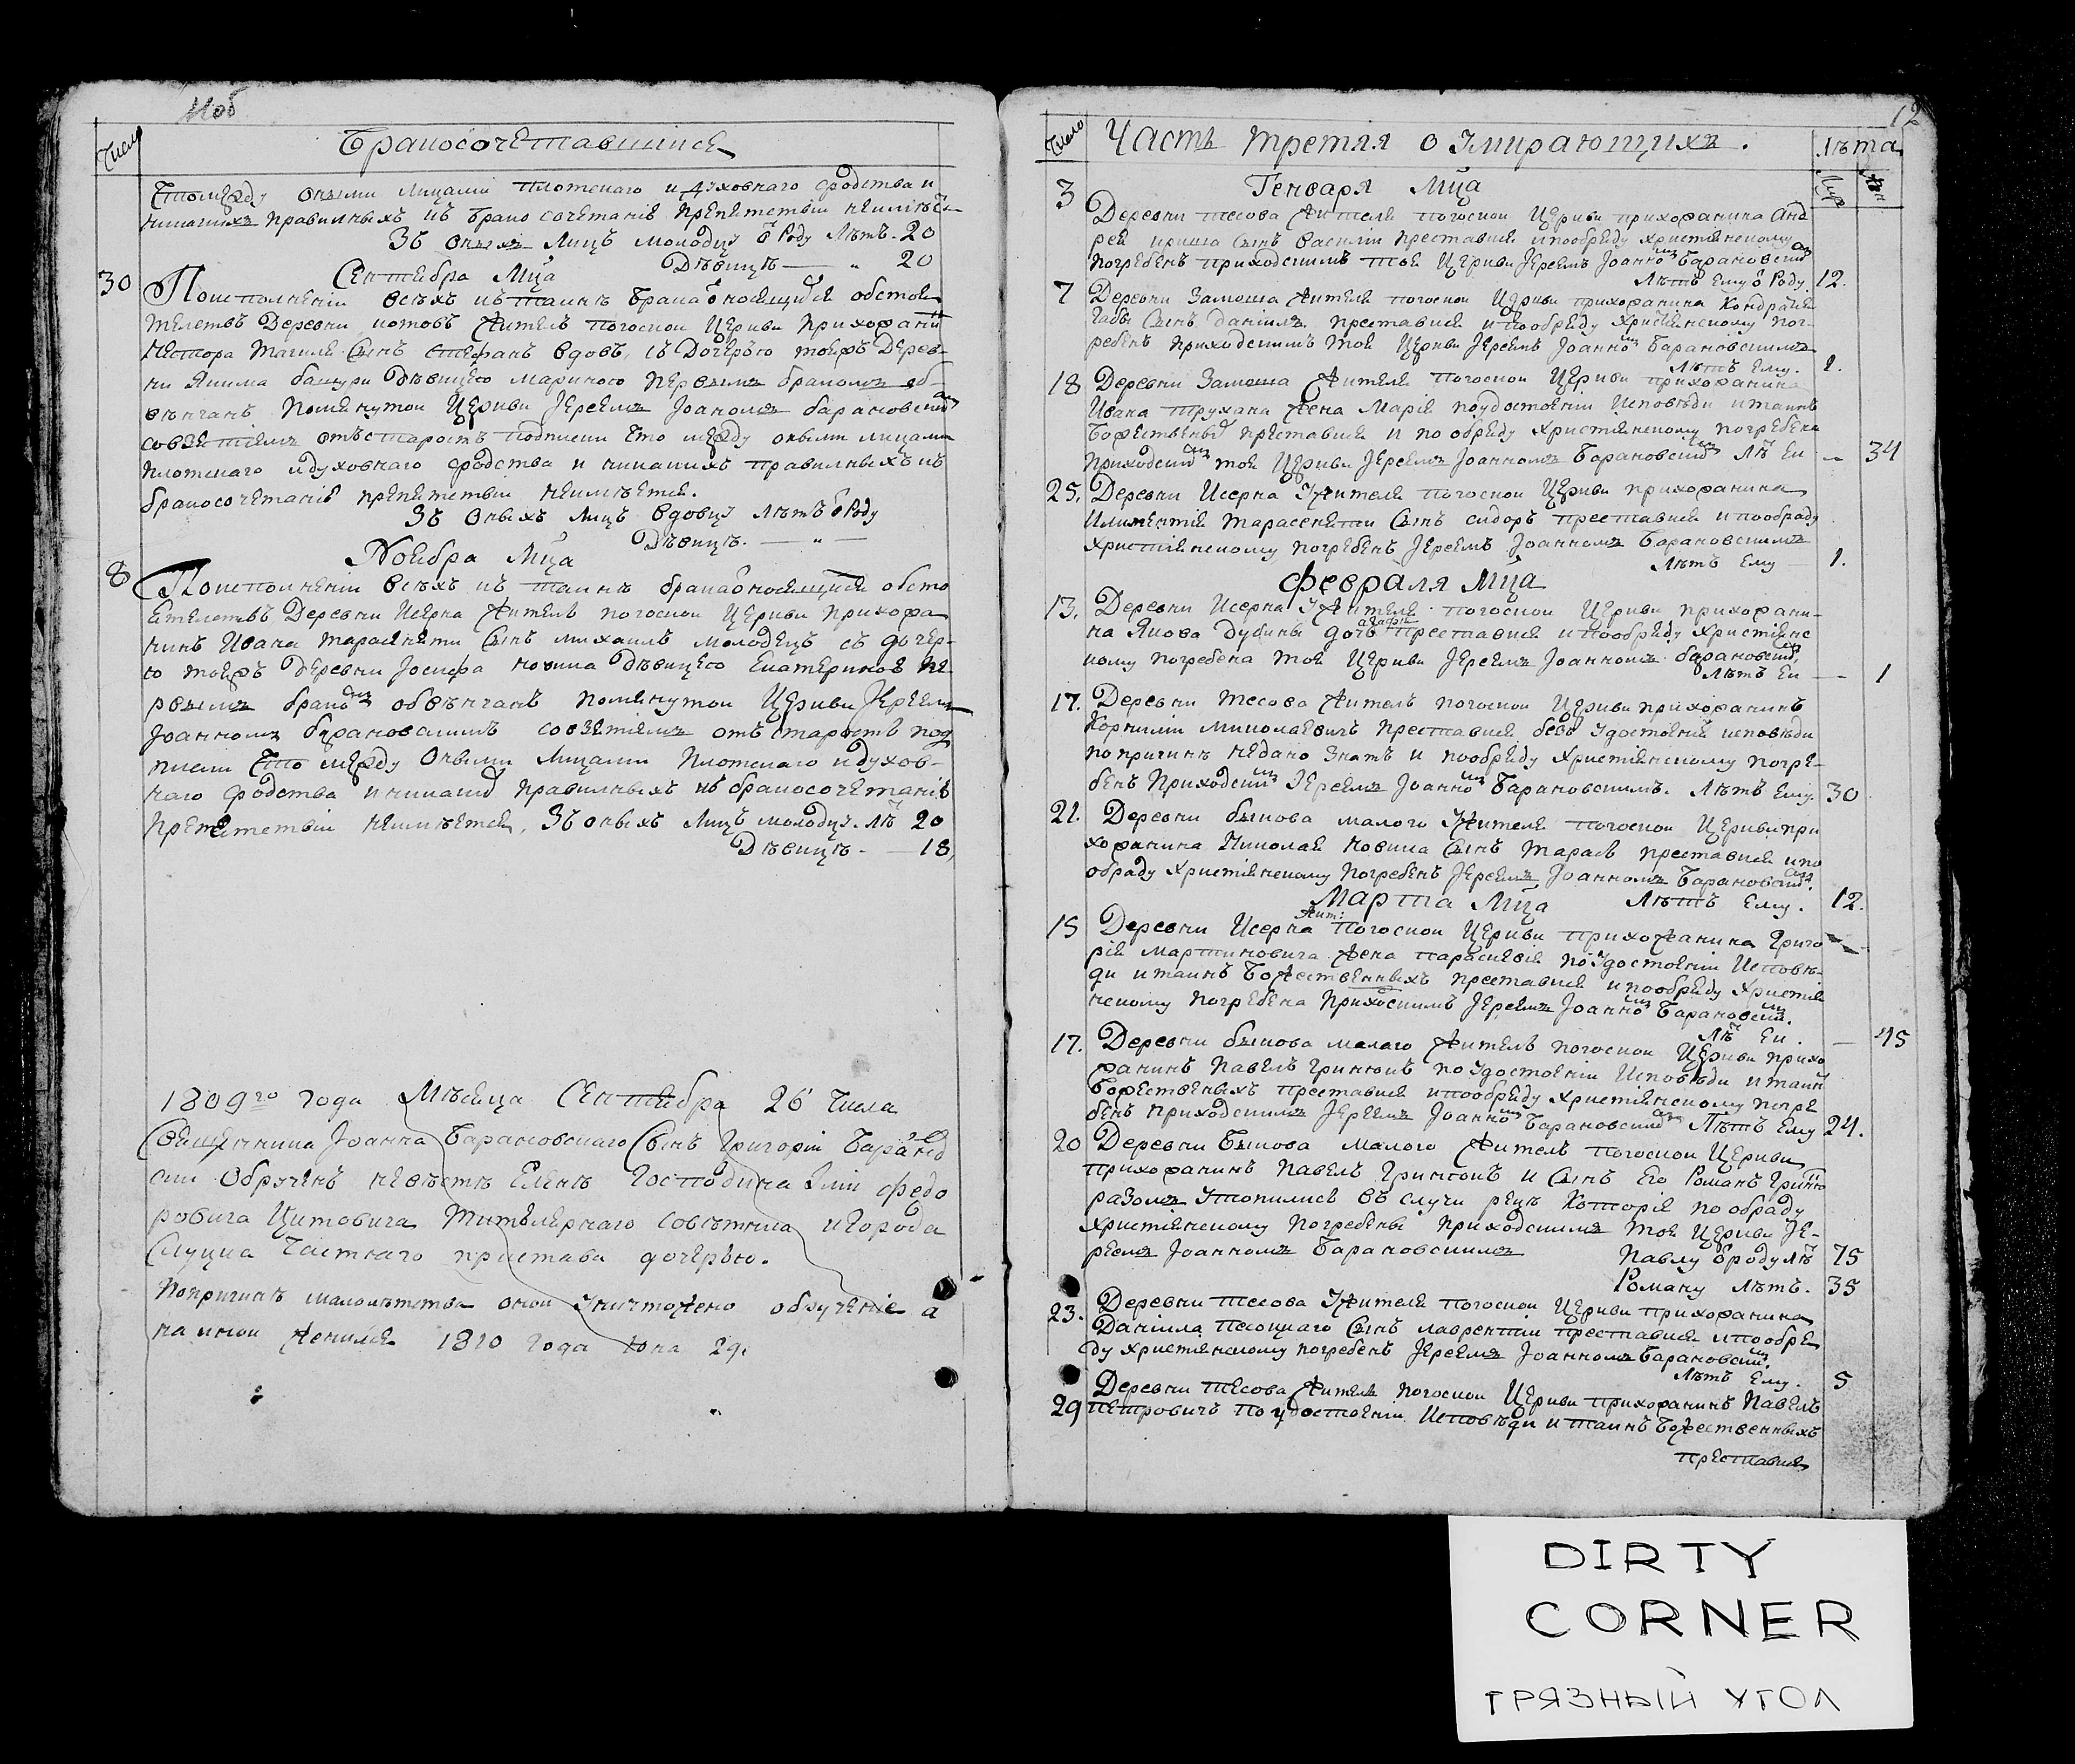 Число
Бракосочетавшиися
Что между оными лицами плотскаго и духовнаго сродства и
никакихъ правилныхъ къ брако сочетанiю препятствiи неимѣется
Зъ оныхъ Лицъ молодцу ѿ Роду Лѣтъ. 20
Дѣвицѣ — " 20
Сентябра Мца
30 Поисполненiи всѣхъ къ таинѣ брака ѿносящихся обстоя
телствъ Деревни
житель погоскои Церкви Прихожанин
Нестора сынъ Стефанъ вдовъ, съ Дочерью тоежъ Дерев-
ни Якима дѣвицею Мариною первымъ бракомъ об-
вѣнчанъ помянутои Церкви Iереемъ Iоаномъ барановским
совзятiемъ отъ старостъ подписки Что между оными лицами
плотскаго идуховнаго сродства и никакихъ правилныхъ къ
бракосочетанiю препятствiи неимѣется.
Зъ Оныхъ Лицъ вдовцу лѣтъ ѿ Роду
Дѣвицѣ. — " —
Ноября Мца
8 Поисполненiи всѣхъ къ таинѣ брака ѿносящихся обсто
ятелствъ Деревни Исерна житель погоскои Церкви Прихожа
нинъ Ивана Тарасевити сынъ михаилъ молодецъ съ дочер-
ю тоежъ Деревни Iосифа новика дѣвицею Екатериною пе-
рвымъ браком обвѣнчанъ помянутои Церкви Iереемъ
Iоанномъ барановскимъ совзятiемъ отъ старостъ под
писки Что между Оными Лицами Плотскаго идухов-
наго сродства иникаких правилныхъ къ бракосочетанiю
препятствiи неимѣется, Зъ оныхъ Лицъ молодцу. лѣ 20
Дѣвицѣ - — 18,
1809го года Мѣсяца Сентября 26 Числа
Священника Iоанна Барановскаго сынъ Григорiи Баранов
ски Обрученъ невѣстѣ Еленѣ Господина Илiи федо
ровича Цитовича Титулярнаго совѣтника игорода
Слуцка Частнаго пристава дочерью.
Попричинѣ малолѣтства онои уничтожено обрученiе а
на инои женился 1810 года Юна 29.
12
Число Часть третяя о умирающихъ. Лѣта
Генваря Мца
3 Деревни тесова жителя погоскои Церкви прихожанина Анд
рея сынъ Василiи преставися ипообряду христiянскому
погребенъ приходскимъ тоя Церкви Iереемъ Iоанном Барановским
Лѣтъ Ему ѿ Роду. 12.
7 Деревни Замоша жителя погоскои Церкви прихожанина Кондратiя
сынъ данiилъ преставися ипообряду христiянскому пог-
ребенъ приходскимъ тоя Церкви Iереемъ Iоанном Барановскимъ
Лѣтъ Ему.
18 Деревни Замоша жителя погоскои Церкви прихожанина
Ивана трухана жена Марiя поудостоенiи Исповѣди итаинъ
Божественных преставися и по обряду христiянскому погребена
приходским тоя Церкви Iереемъ Iоанномъ Барановским лѣ Еи — 34
25. Деревни Исерна жителя погоскои Церкви прихожанина
Климентiя Тарасевити сынъ сидоръ преставися ипообряду
Христiянскому погребенъ Iереемъ Iоанномъ Барановскимъ
Лѣтъ Ему — 1.
Февраля Мца
13. Деревни Исерна жителя погоскои Церкви прихожани-
на Якова дубины дочь агафiя преставися ипообряду христiянс
кому погребена тоя Церкви Iереемъ Iоанномъ барановским,
Лѣтъ Еи — 1
17. Деревни тесова житель погоскои Церкви прихожанинъ
Корнилiи Миколаевичъ преставися безъ удостоенiя исповѣди
попричинѣ недано знать и пообряду христiянскому погре-
бенъ Приходским Iереемъ Iоанном Барановскимъ. Лѣтъ Ему. 30
21. Деревни быкова малого жителя погоскои Церкви при
хожанина Николая новика сынъ Тарасъ преставися ипо
обряду христiянскому погребенъ Iереемъ Iоанномъ Барановским.
Марта Мца Лѣтъ Ему. 12.
15 Деревни Исерна жит: погоскои Церкви прихожанина Григо
рiя мартиновича жена параскевiя поудостоенiи Исповѣ-
ди итаинъ Божественныхъ преставися ипообряду христiян
скому погребена приходскимъ Iереемъ Iоанном Барановским.
Лѣ Еи. — 45
17. Деревни быкова малаго житель погоскои Церкви прихо
жанинъ Павелъ Гринюкъ поудостоенiи Исповѣди итаин
Божественыхъ преставися ипообряду христiянскому погре
бенъ приходскимъ Iереемъ Iоанном Барановским Лѣтъ Ему 24.
20 Деревни Быкова малого житель погоскои Церкви
прихожанинъ Павелъ Гринюкъ и сынъ Его Романъ Гриню
разомъ утопились въ случи рецѣ Которiе по обряду
христiянскому погребены приходскимъ тоя Церкви Iе-
реемъ Iоанномъ Барановскимъ Павлу ѿ роду лѣ 75
Роману лѣтъ. 35
23. Деревни тесова жителя погоскои Церкви прихожанина
Данiила Песоцкаго сынъ лаврентiи преставися ипообря
ду христiянскому погребенъ Iереемъ Iоанномъ Барановским.
Лѣтъ Ему. 5
Деревни тесова житель погоскои Церкви прихожанинъ Павелъ
29 петровичъ по удостоенiи Исповѣди итаинъ Божественныхъ
преставися
DIRTY
CORNER
ГРЯЗНЫЙ УГОЛ